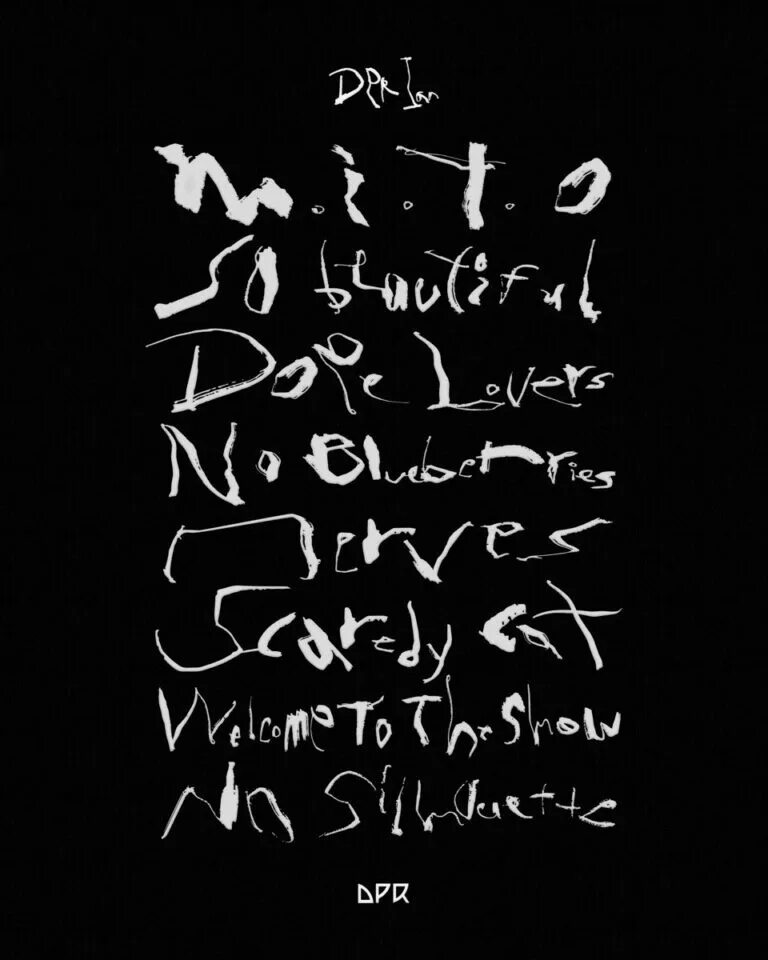 DPR Ian
m.i.T.o
So beautiful
Dope Lovers
No Blueberries
Nerves
Scaredy Cat
Welcome To The Show
No Silhouette
DPR